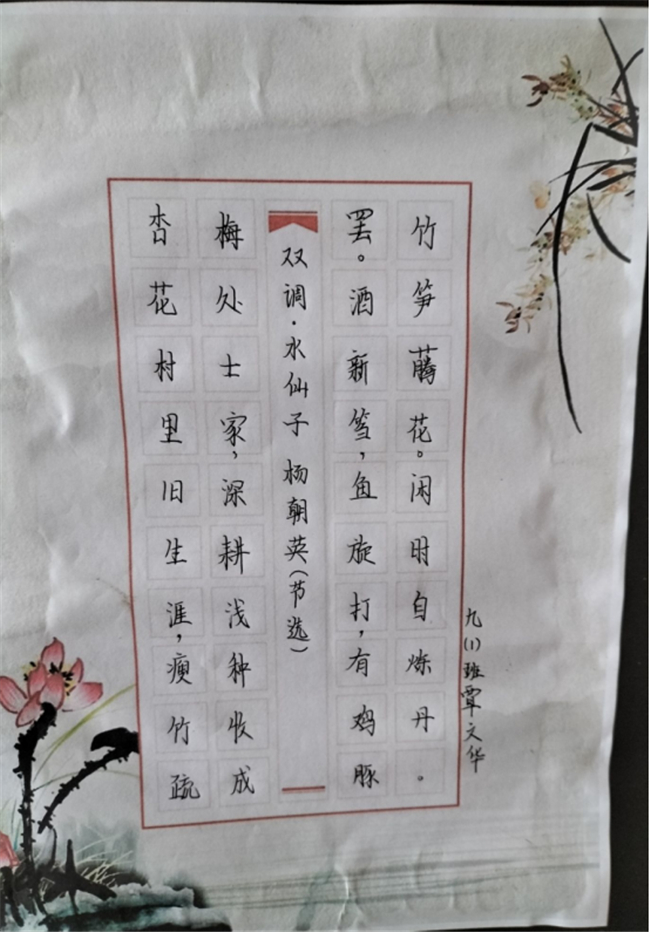 杏花村里旧生涯，瘦竹疏
梅处士家，深耕浅种收成
双调·水仙子 杨朝英（节选）
罢。酒新篘，鱼旋打，有鸡豚
竹笋藤花。闲时自炼丹。
九（1）班覃文华